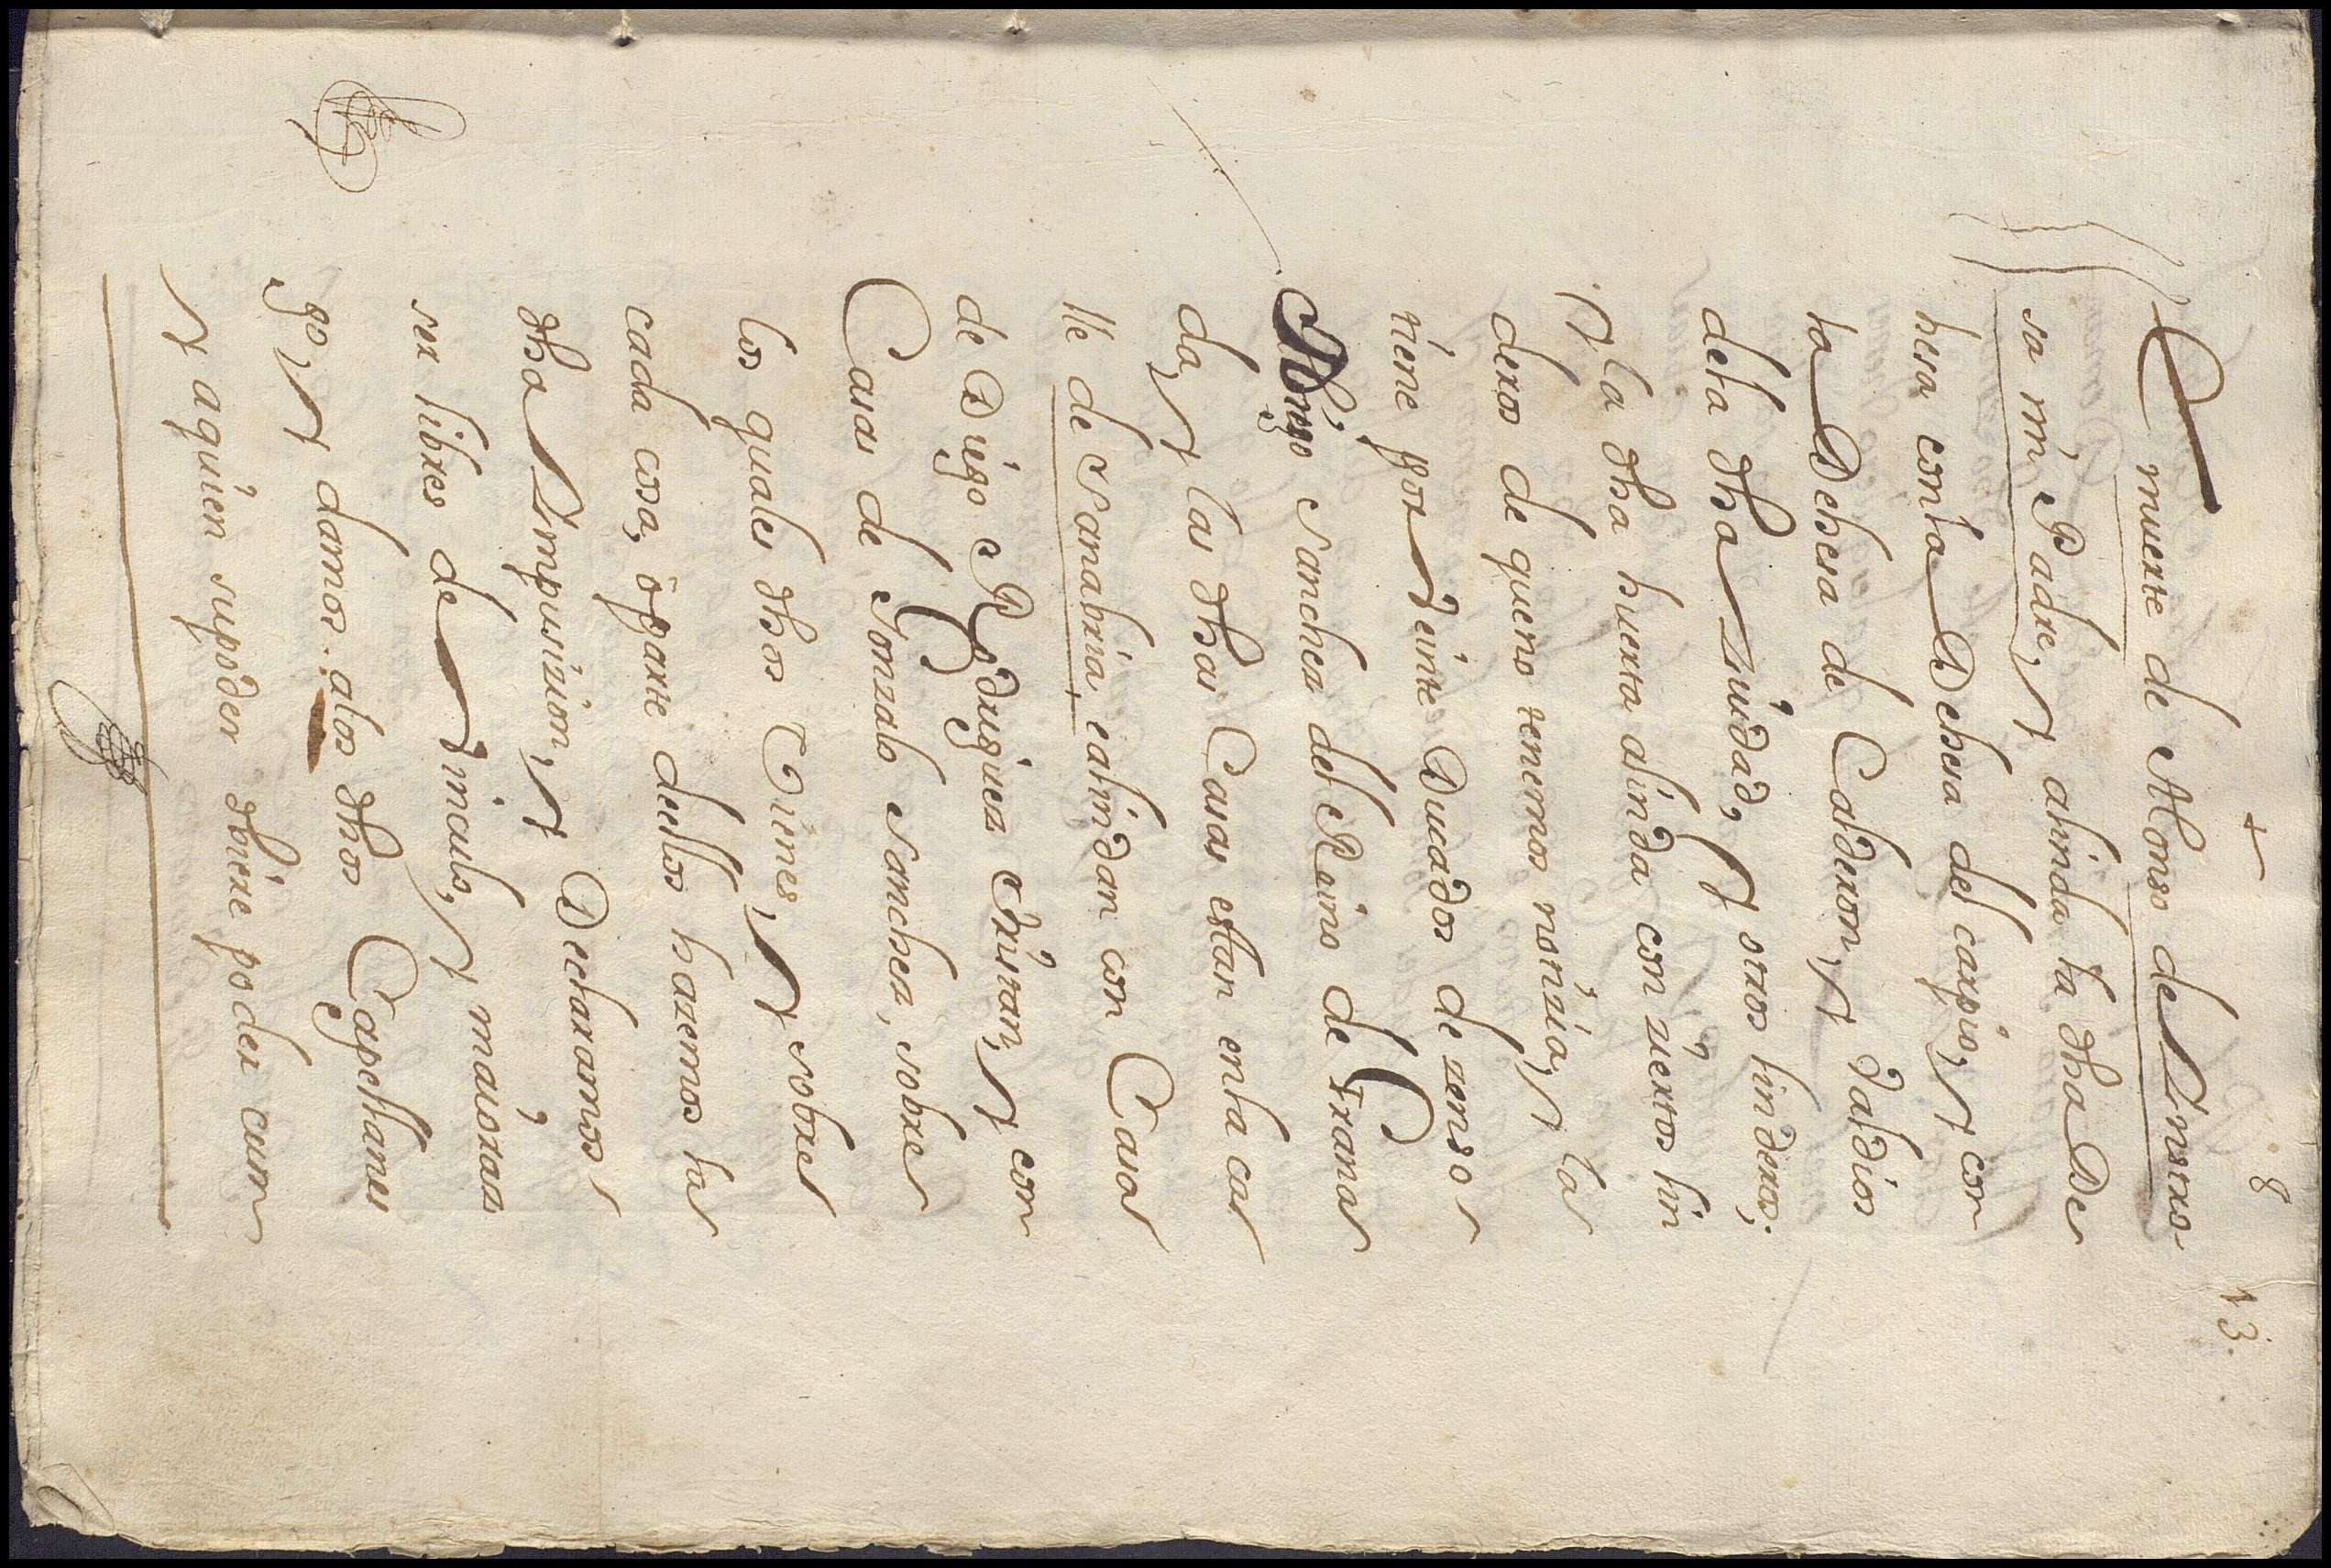 + 8 13.
muerte de Alonso de Sintro
sa mi Padre, y alinda la dha De
hesa con la Dehesa del carpio, y con
la Dehesa de Calderon, y valdios
desta dha Ziudad, y otros linderos;
Y la dha huerta alinda con ziertos lin
deros de que no tenemos notizia, y la
tiene por Veinte Ducados de zenso
Sanchez del Reino de Grana
da, y las dhas Casas estan en la ca
lle de Sanabria, ealindan con Casas
de Diego Rodriguez y con
Casas de Gonzalo Sanchez, sobre
los quales dhos Vienes, y sobre
cada cosa, ò parte dellos hazemos la
dha Impusizion, y Declaramos
ser libres de Vinculo, y maioraz
go, y damos alos dhos Capellanes
y aquien supoder vbiere poder cum